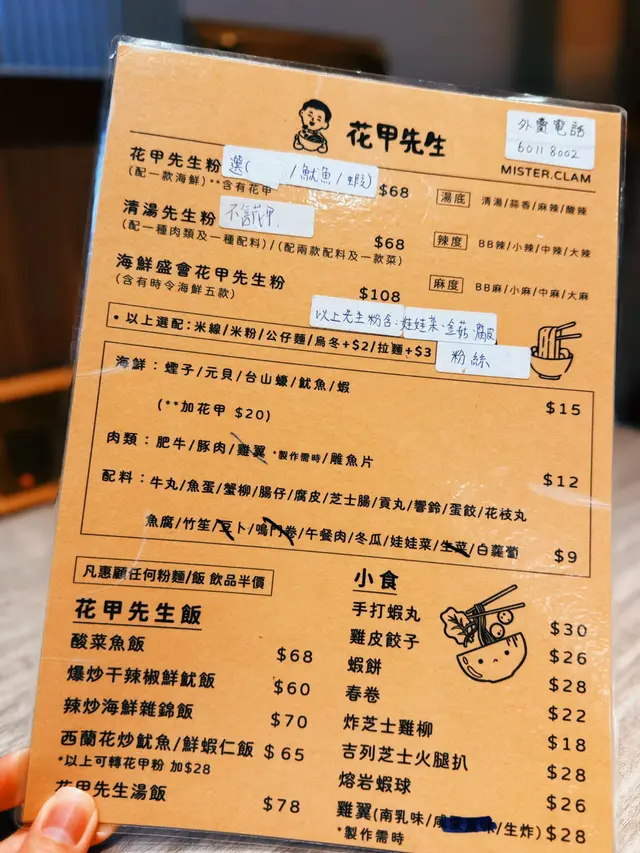 花甲先生
外賣電話
6011 8002
MISTER.CLAM
花甲先生粉 選( /魷魚/蝦) $68
(配一款海鮮)**含有花甲
湯底 清湯/蒜香/麻辣/酸辣
清湯先生粉 $68
(配一種肉類及一種配料)/(配兩款配料及一款菜)
辣度 BB辣/小辣/中辣/大辣
海鮮盛會花甲先生粉 $108
(含有時令海鮮五款)
麻度 BB麻/小麻/中麻/大麻
以上先生粉含:娃娃菜、金菇、腐皮
粉絲
• 以上選配:米線/米粉/公仔麵/烏冬+$2/拉麵+$3
海鮮:蟶子/元貝/台山蠔/魷魚/蝦 $15
(**加花甲 $20)
肉類:肥牛/豚肉/雞翼 *製作需時/雕魚片 $12
配料:牛丸/魚蛋/蟹柳/腸仔/腐皮/芝士腸/貢丸/響鈴/蛋餃/花枝丸
魚腐/竹笙/豆卜/鳴門卷/午餐肉/冬瓜/娃娃菜/生菜/白蘿蔔 $9
凡惠顧任何粉麵/飯 飲品半價
花甲先生飯
酸菜魚飯 $68
爆炒干辣椒鮮魷飯 $60
辣炒海鮮雜錦飯 $70
西蘭花炒魷魚/鮮蝦仁飯 $65
*以上可轉花甲粉 加$28
花甲先生湯飯 $78
小食
手打蝦丸 $30
雞皮餃子 $26
蝦餅 $28
春卷 $22
炸芝士雞柳 $18
吉列芝士火腿扒 $28
熔岩蝦球 $26
雞翼(南乳味/咸 /生炸) $28
*製作需時